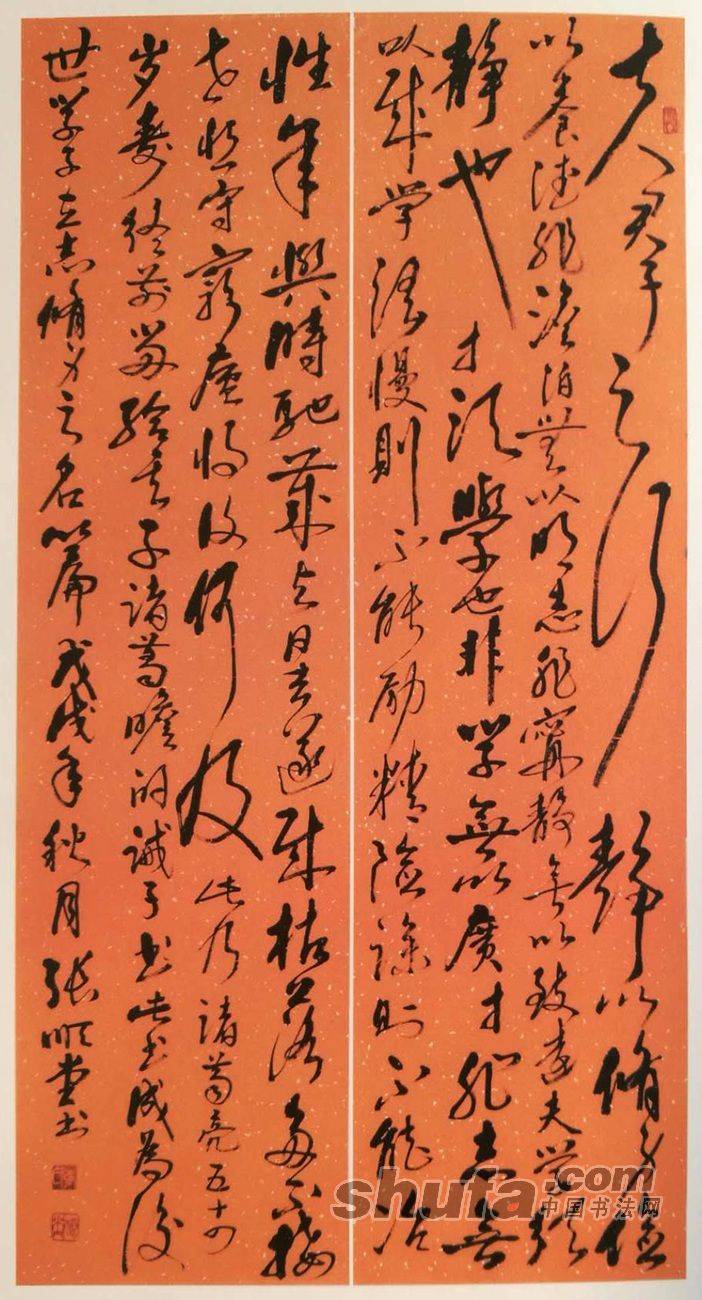 夫君子之行静以脩身俭
以养德非澹泊无以明志非宁静无以致远夫学须
静也才须学也非学无以广才非志无
以成学淫慢则不能励精险躁则不能冶
性年与时驰万与日去遂成枯落多不接
世悲守穷庐将复何及此乃诸葛亮五十四
岁寿终前留给其子诸葛瞻的诫子书此书成为后
世学子立志脩身之名篇戊戌年秋月张顺堂书
shufa.com
中国书法网